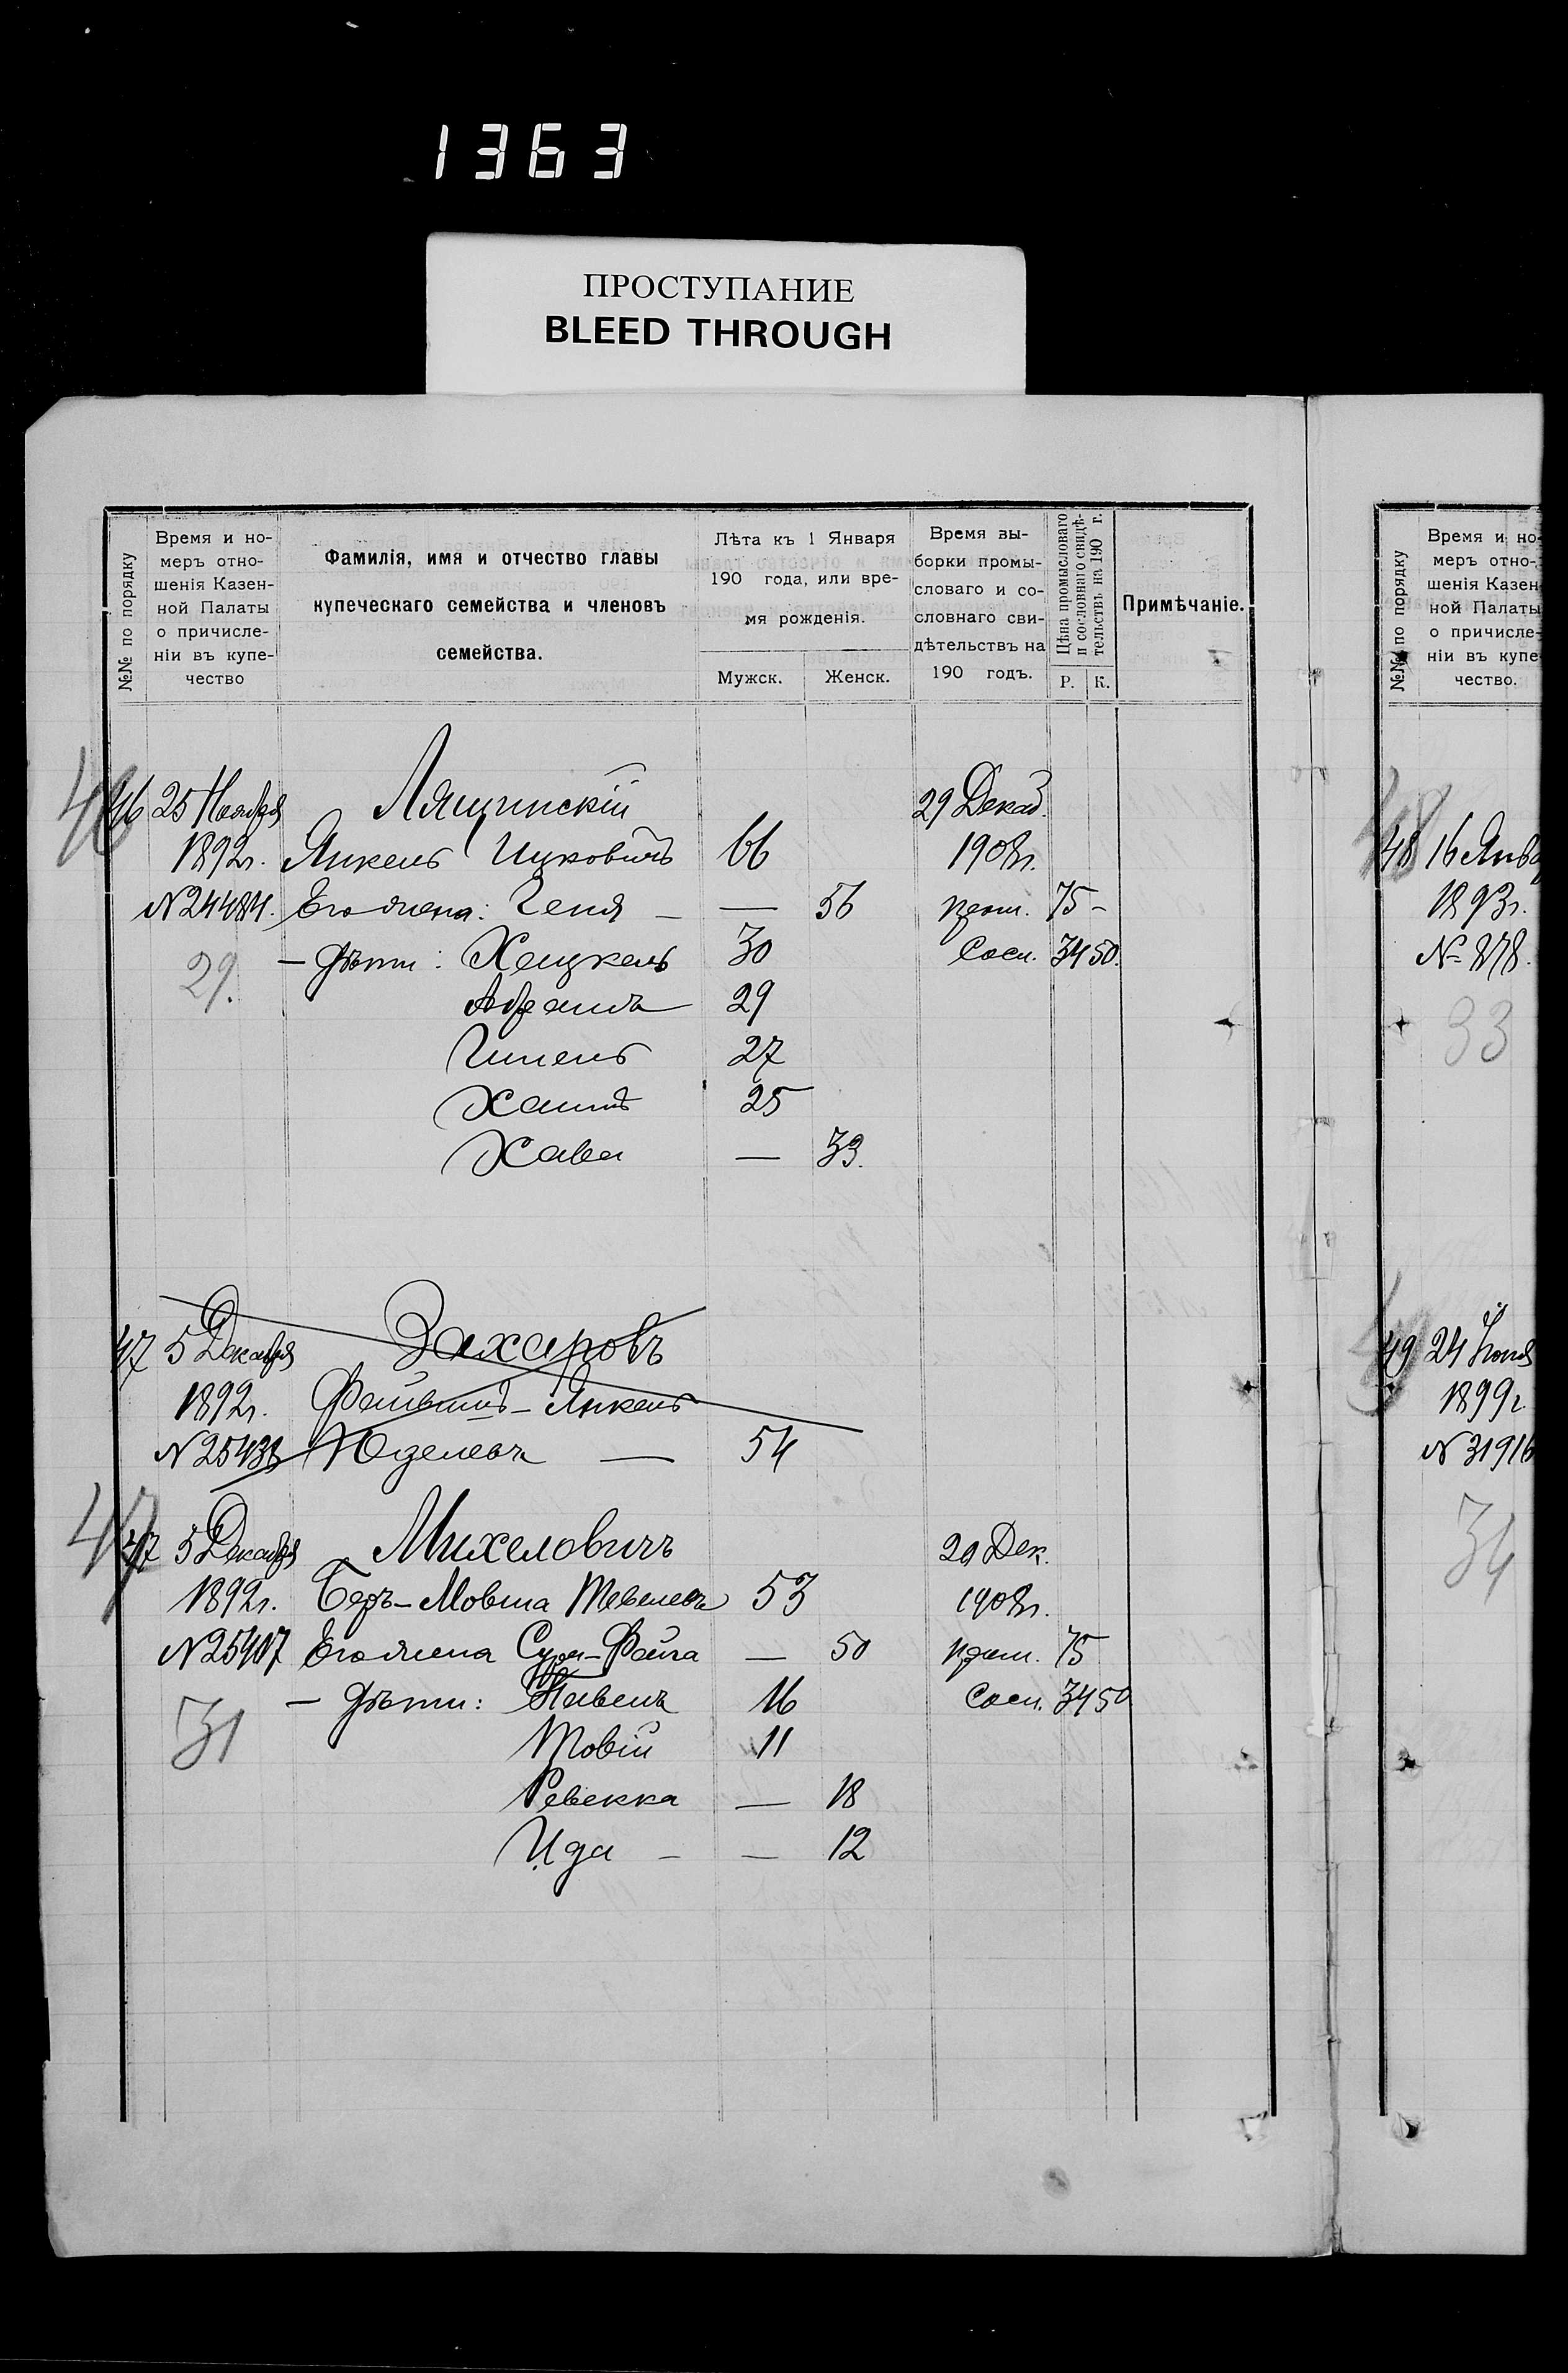 1363
ПРОСТУПАНИЕ
BLEED THROUGH
№№ по порядку
Время и но-
меръ отно-
шенія Казен-
ной Палаты
о причисле-
ніи въ купе-
чество
Фамилія, имя и отчество главы
купеческаго семейства и членовъ
семейства.
Лѣта къ 1 Января
190 года, или вре-
мя рожденія.
Мужск. Женск.
Время вы-
борки промы-
словаго и со-
словнаго сви-
дѣтельствъ на
190 годъ.
Цѣна промысловаго
и сословнаго свидѣ-
тельствъ на 190 г.
Р. К.
Примѣчаніе.
46
46 25 Ноября Лящинскій 29 Декаб.
1892г. Янкель Ицковичъ 66 1908г.
N24484. Его жена: Геня — — 56 пром. 75 -
29. — Дѣти: Хацкель 30 Сосл. 34 50.
Абрамъ 29
Гилель 27
Хаимъ 25
Хава — 33.
47 5 Декабря Захаровъ
1892г. Файвишъ-Янкель
N25438 Юделевъ — 54
47
47 5 Декабря Михеловичъ 29 Дек.
1892г. Беръ-Мовша Тевелевъ 53 1908г.
N25407 Его жена Сура-Фейга — 50 пром. 75
31 — Дѣти: Павелъ 16 Сосл. 34 50
Товій 11
Ревекка — 18
Ида - — 12
№№ по порядку
Время и но-
меръ отно-
шенія Казен-
ной Палаты
о причисле-
ніи въ купе-
чество.
48
48 16 Янва
1893г.
№ 878.
33
49
49 24
1899г
N 31916
34